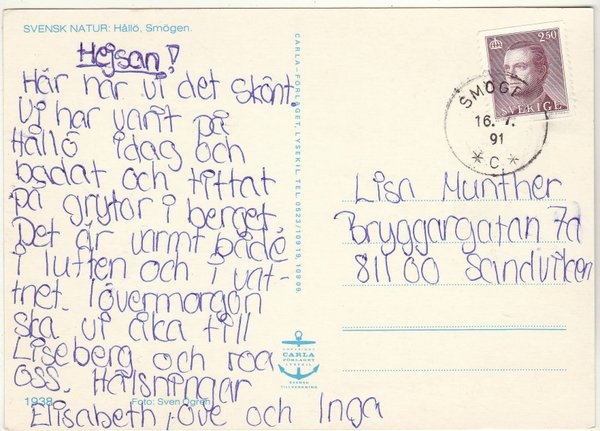 SVENSK NATUR: Hållö, Smögen.
Hejsan!
Här har vi det skönt.
Vi har varit på
Hållö idag och
badat och tittat
på grytor i berget.
Det är varmt både
i luften och i vat-
tnet. Iövermorgon
ska vi åka till
Liseberg och roa
oss. Hälsningar
Elisabeth, Ove och Inga
1938
Foto: Sven Ögren
CARLA-FÖRLAGET, LYSEKIL. TEL. 0523/10919, 109 09.
COPYRIGHT
CARLA
FÖRLAGET
LYSEKIL
SVENSK
TILLVERKNING
250
SVERIGE
SMÖGEN
16. 7.
91
* C *
Lisa Munther
Bryggargatan 7a
811 00 Sandviken